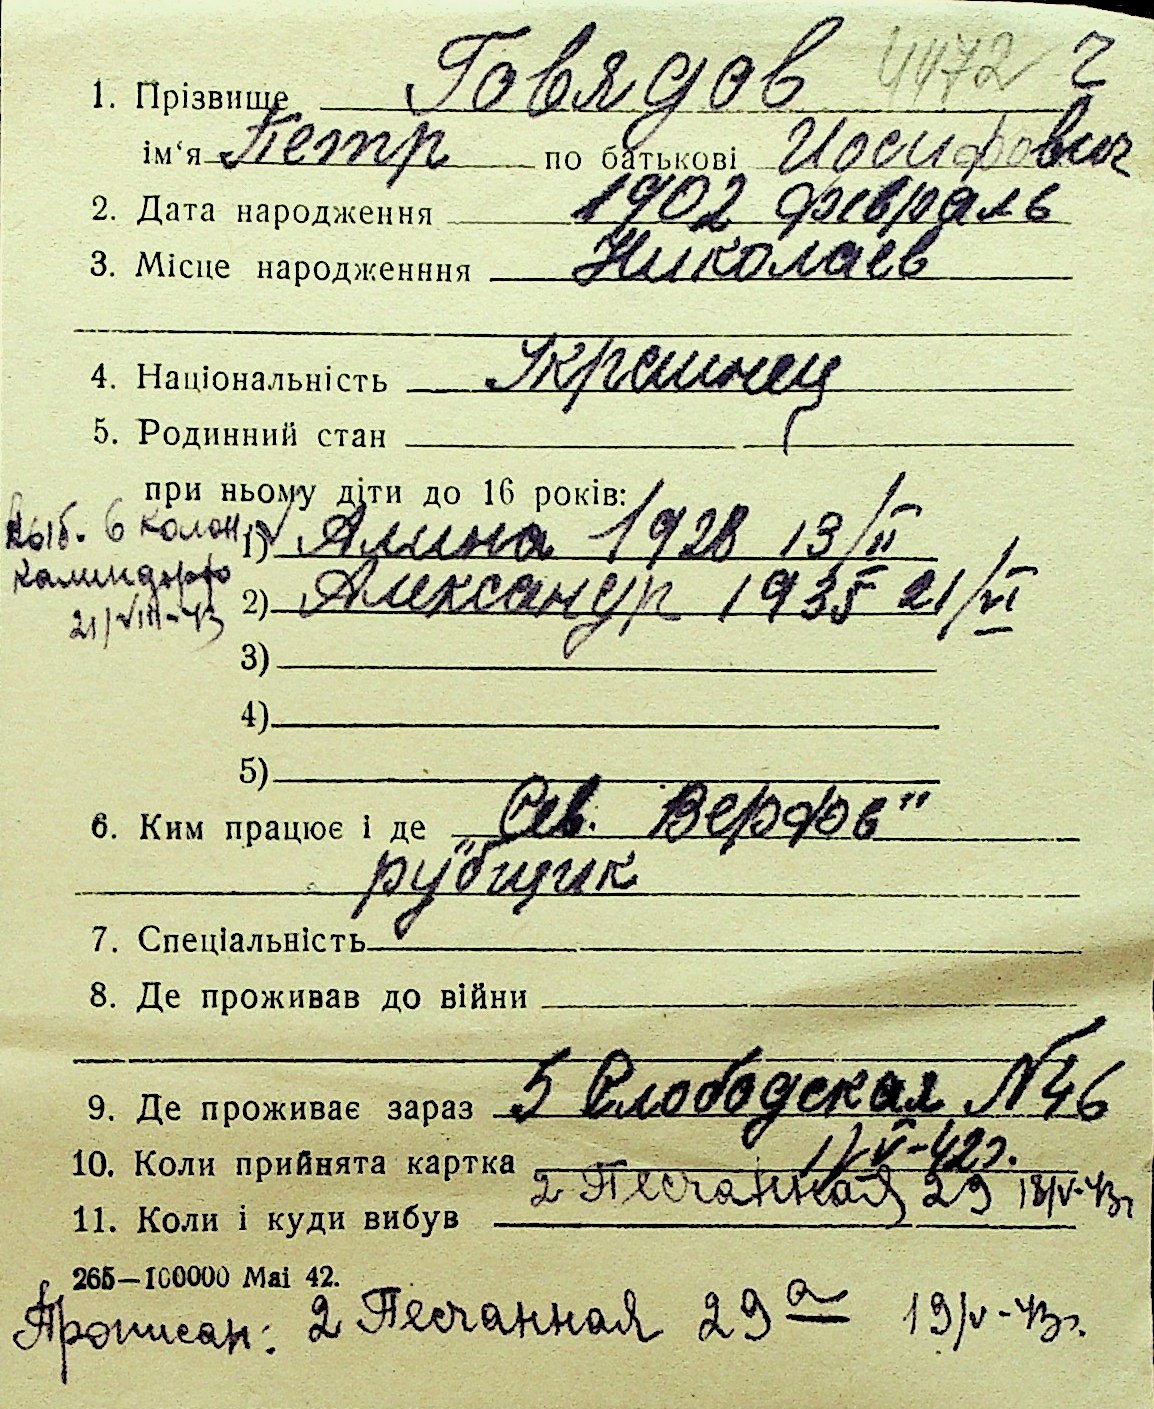 1. Прізвище Говядов 4472 2
ім‘я Петр по батькові Иосифович
2. Дата народження 1902 февраль
3. Місце народженння Николаев
4. Національність Украинец
5. Родинний стан
при ньому діти до 16 років:
Выб. в колон
Калиндорф
21/VIII-43
1) Алина 1928 13/II
2) Александр 1935 21/VI
3)
4)
5)
6. Ким працює і де „Сев. Верфь"
рубщик
7. Спеціальність
8. Де проживав до війни
9. Де проживає зараз 5 Слободская №46
10. Коли прийнята картка 1/V-42г.
2 Песчанная 29 18/V-43г
11. Коли і куди вибув
265—100000 Mai 42.
Прописан: 2 Песчанная 29а 19/V-43г.